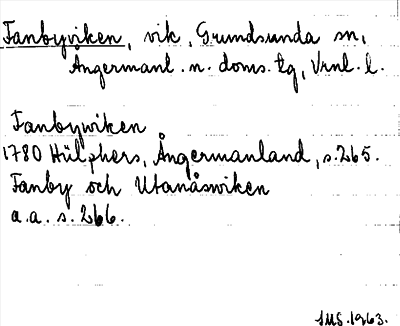 Fanbyviken, vik, Grundsunda sn,
Ångermanl. n. doms. tg, Vrnl. l.
Fanbywiken
1780 Hülphers, Ångermanland, s. 265.
Fanby och Utanåswiken
a.a. s. 266.
IMS. 1963.